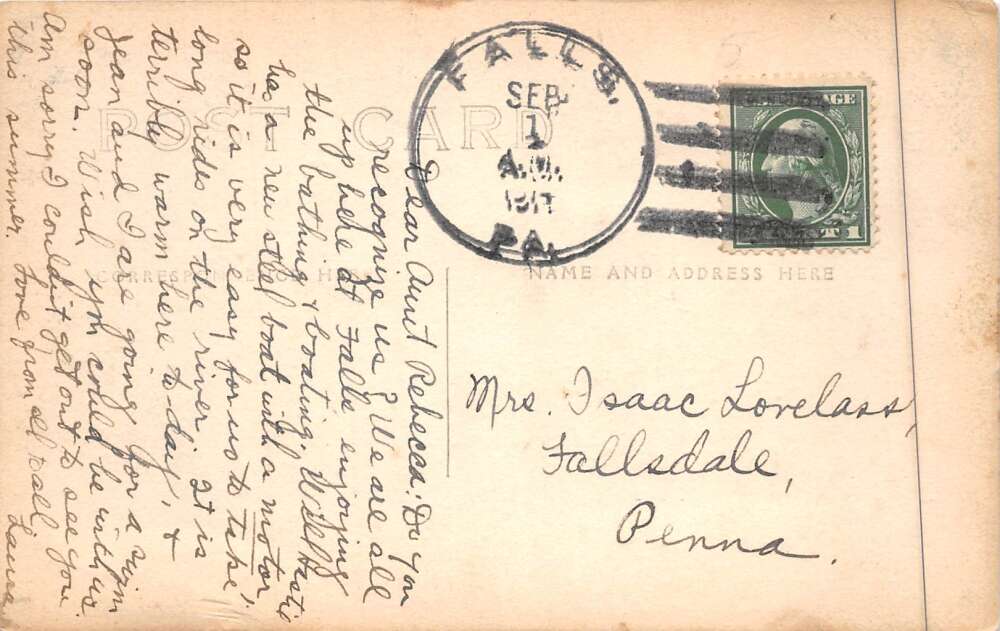 POST CARD
CORRESPONDENCE HERE
NAME AND ADDRESS HERE
FALLS.
SEP
1
A.M.
PA.
AGE
1
Dear Aunt Rebecca: Do you
recognize us? We are all
up here at Falls enjoying
the bathing & boating.
has a new steel boat with a motor
so it is very easy for us to take
long rides on the river. It is
terribly warm here to-day, &
Jean and I are going for a swim
soon. Wish you could be with us.
Am sorry I couldn't get out to see you
this summer. Love from all to all,
Laura
Mrs. Isaac Lovelass,
Fallsdale,
Penna.